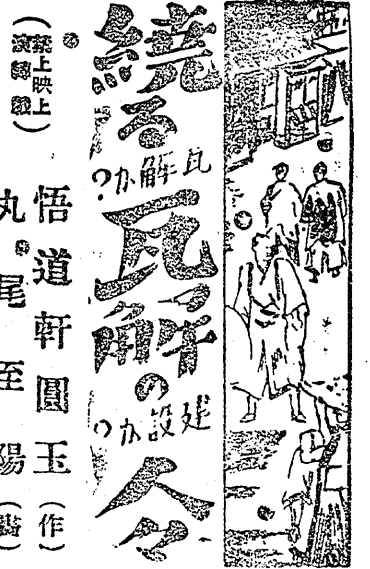 繞る瓦解の人々
瓦解か?
建設か?
悟道軒圓玉(作)
丸尾至陽(畵)
(禁上映上
演轉載)